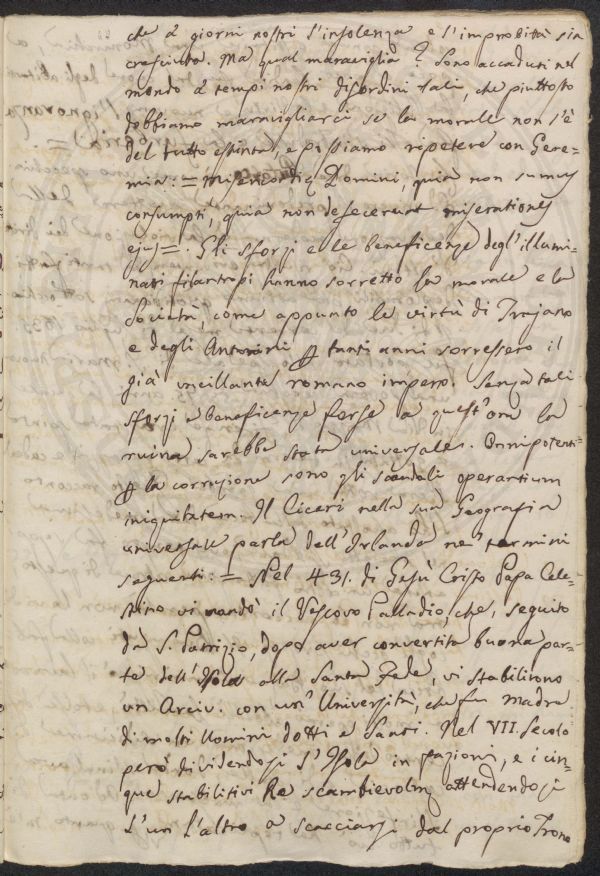 che a' giorni nostri l'insolenza e l'improbità sia
cresciuta. Ma qual maraviglia? Sono accaduti nel
mondo a' tempi nostri disordini tali, che piuttosto
dobbiamo maravigliarci se la morale non s'è
del tutto estinta, e possiamo ripetere con Gere=
mia: = Misericordię Domini, quia non sumus
consumpti, quia non defecerunt miserationes
ejus =. Gli sforzi e le beneficenze degl'illumi=
nati filantropi hanno sorretto la morale e la
Società, come appunto le virtù di Trajano
e degli Antonini ꝑ tanti anni sorressero il
già vacillante romano impero. Senza tali
sforzi e beneficenze forse a quest'ora la
ruina sarebbe stata universale. Onnipotenti=
ꝑ la corruzione sono gli scandali operantium
iniquitatem. Il Ciceri nella sua Geografia
universale parla dell'Irlanda ne' termini
seguenti: = Nel 431. di Gesù Cristo Papa Cele=
stino vi mandò il Vescovo Palladio, che, seguito
da S. Patrizio, dopo aver convertita buona par=
te dell'Isola alla Santa Fede, vi stabilirono
un Arciv. con un' Università, che fu Madre
di molti Uomini dotti e Santi. Nel VII. Secolo
però dividendosi l'Isola in fazioni, e i cin=
que stabilitivi Re scambievolmę attendendosi
l'un l'altro a scacciarsi dal proprio Trono